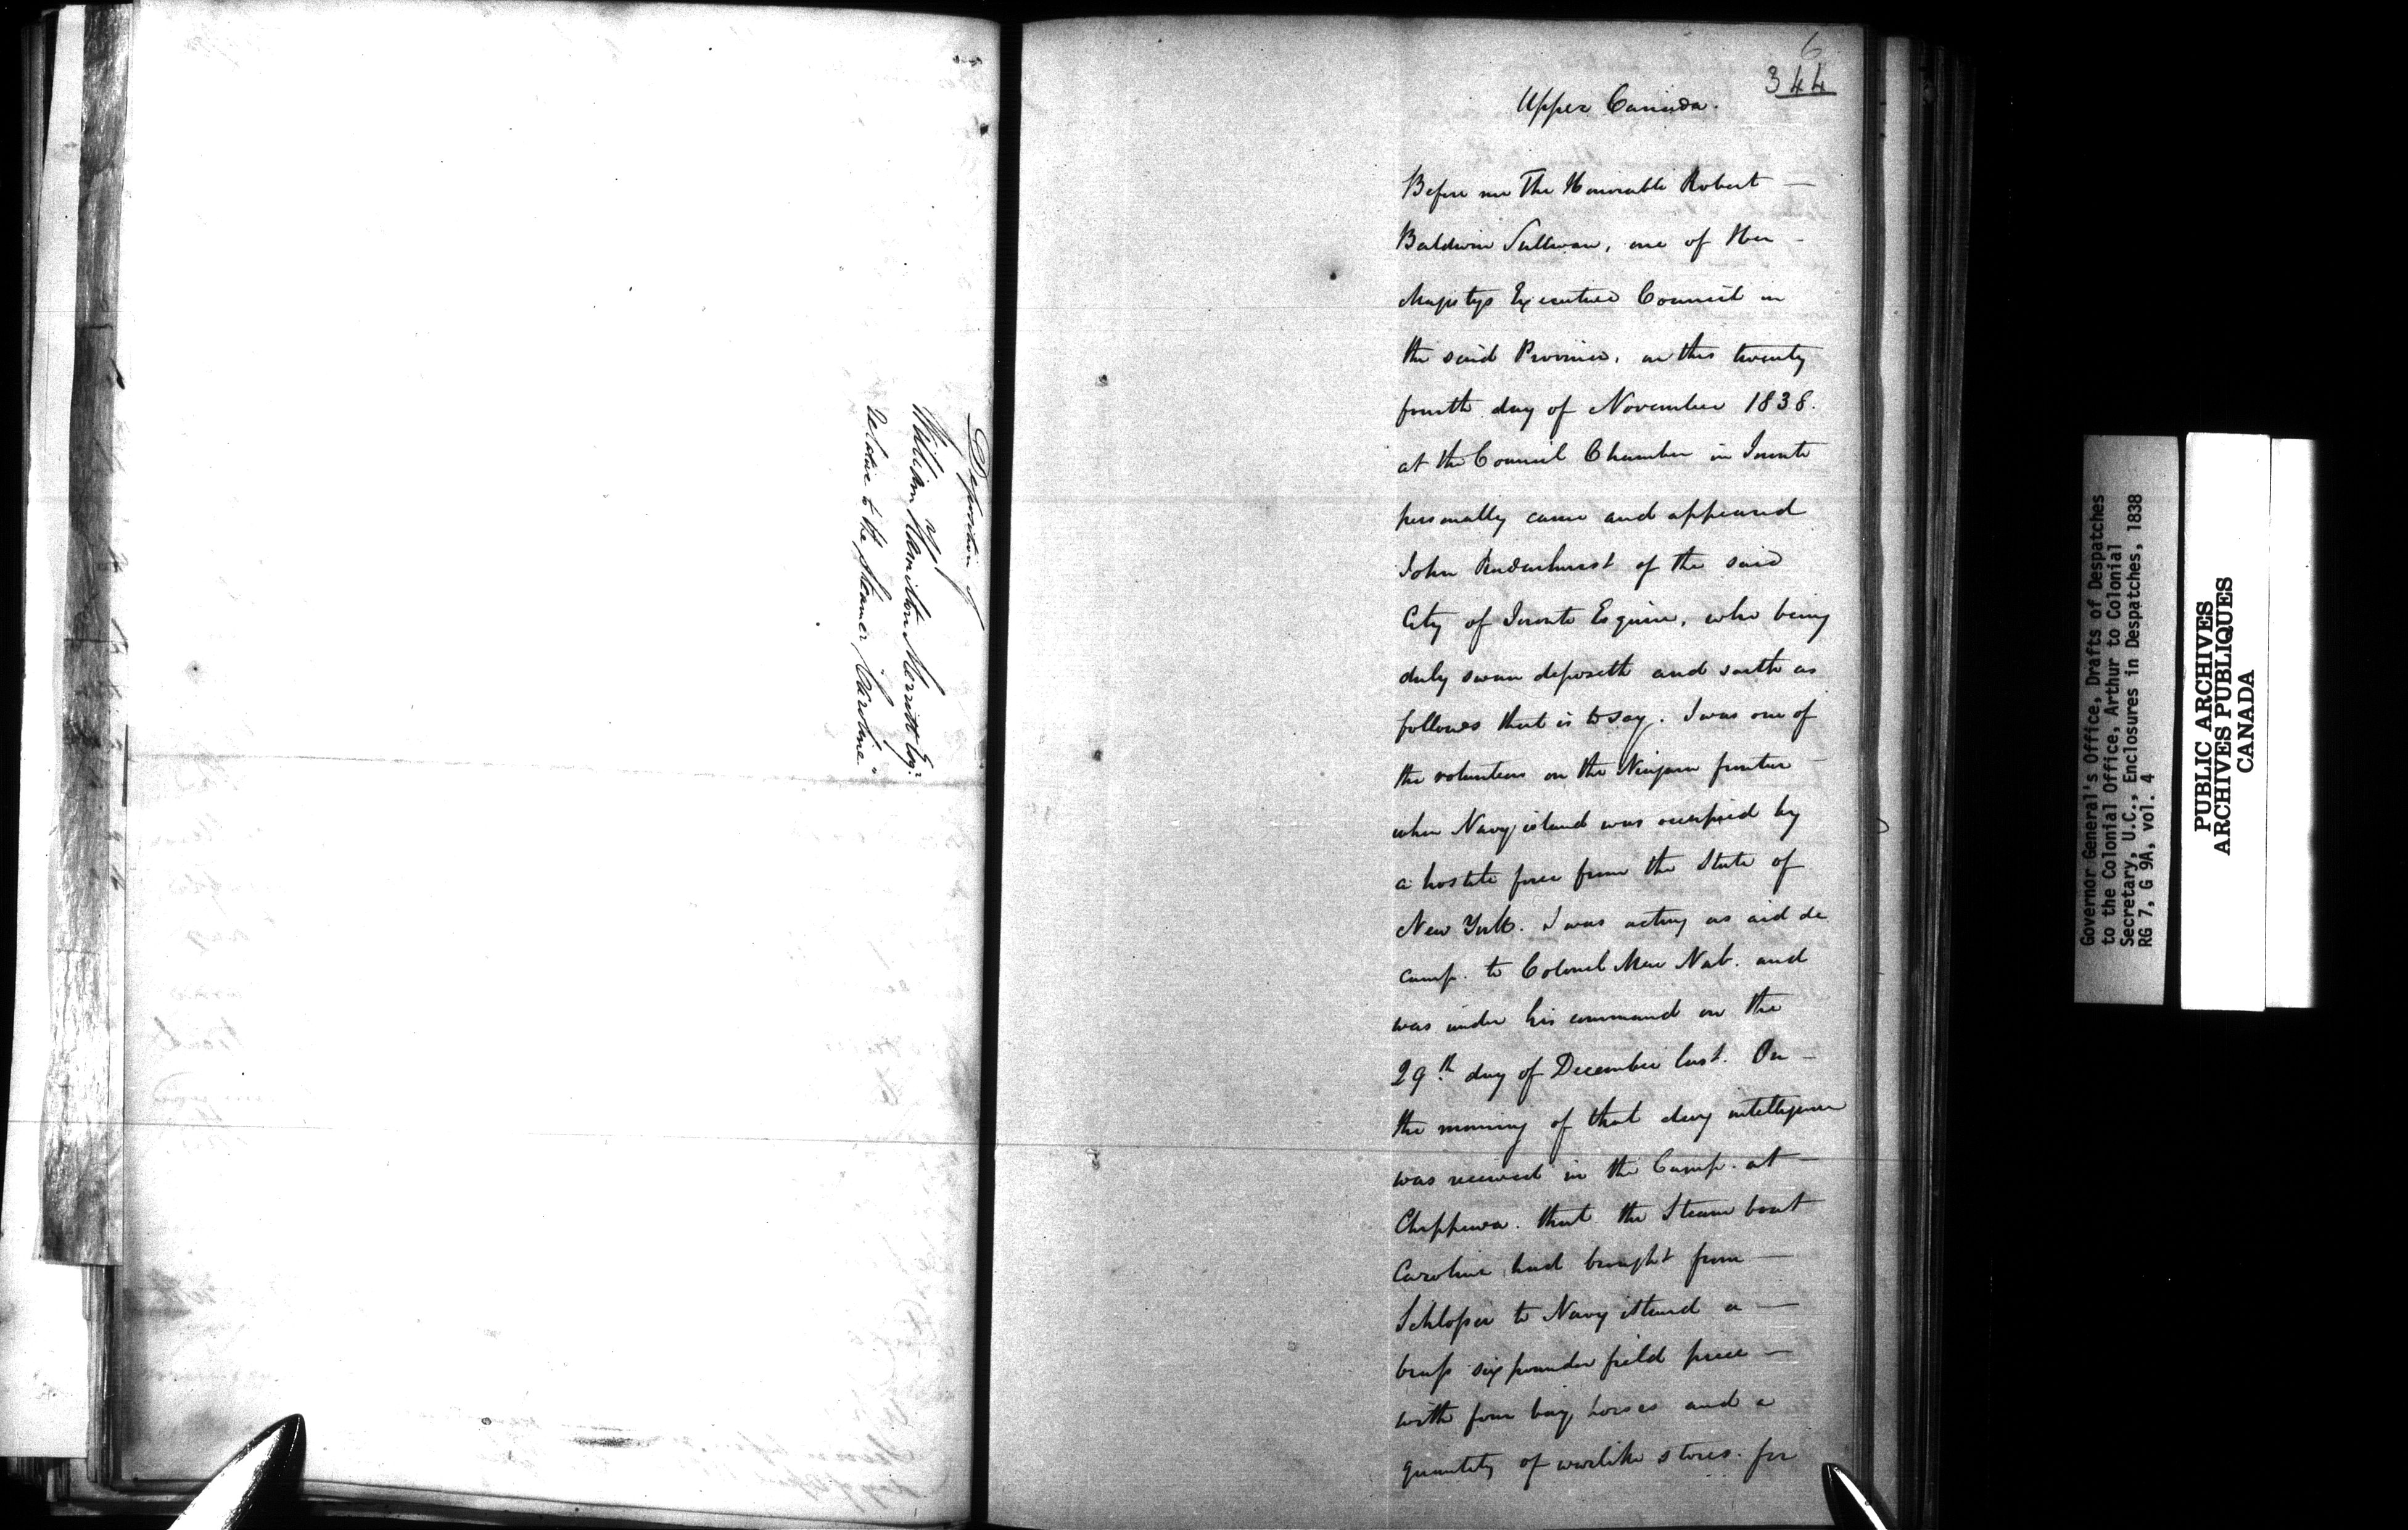 Deposition of
William Hamilton Merritt Esqr.
Relative to the Steamer "Caroline"
6
344
Upper Canada.
Before me The Honorable Robert —
Baldwin Sullivan, one of Her —
Majestys Executive Council in
the said Province, on this twenty
fourth day of November 1838.
at the Council Chamber in Toronto
personally came and appeared
John Radenhurst of the said
City of Toronto Esquire, who being
duly sworn deposeth and saith as
follows that is to say. I was one of
the volunteers on the Niagara frontier —
when Navy island was occupied by
a hostile force from the State of
New York. I was acting as aid de
camp. to Colonel Mac Nab. and
was under his command on the
29th day of December last. On —
the morning of that day intelligence
was received in the Camp. at —
Chippewa. that the Steam boat
Caroline had brought from —
Schlosser to Navy island a —
brass six pounder field piece —
with four bay horses and a
quantity of warlike stores. for
Governor General's Office, Drafts of Despatches
to the Colonial Office, Arthur to Colonial
Secretary, U.C., Enclosures in Despatches, 1838
RG 7, G 9A, vol. 4
PUBLIC ARCHIVES
ARCHIVES PUBLIQUES
CANADA